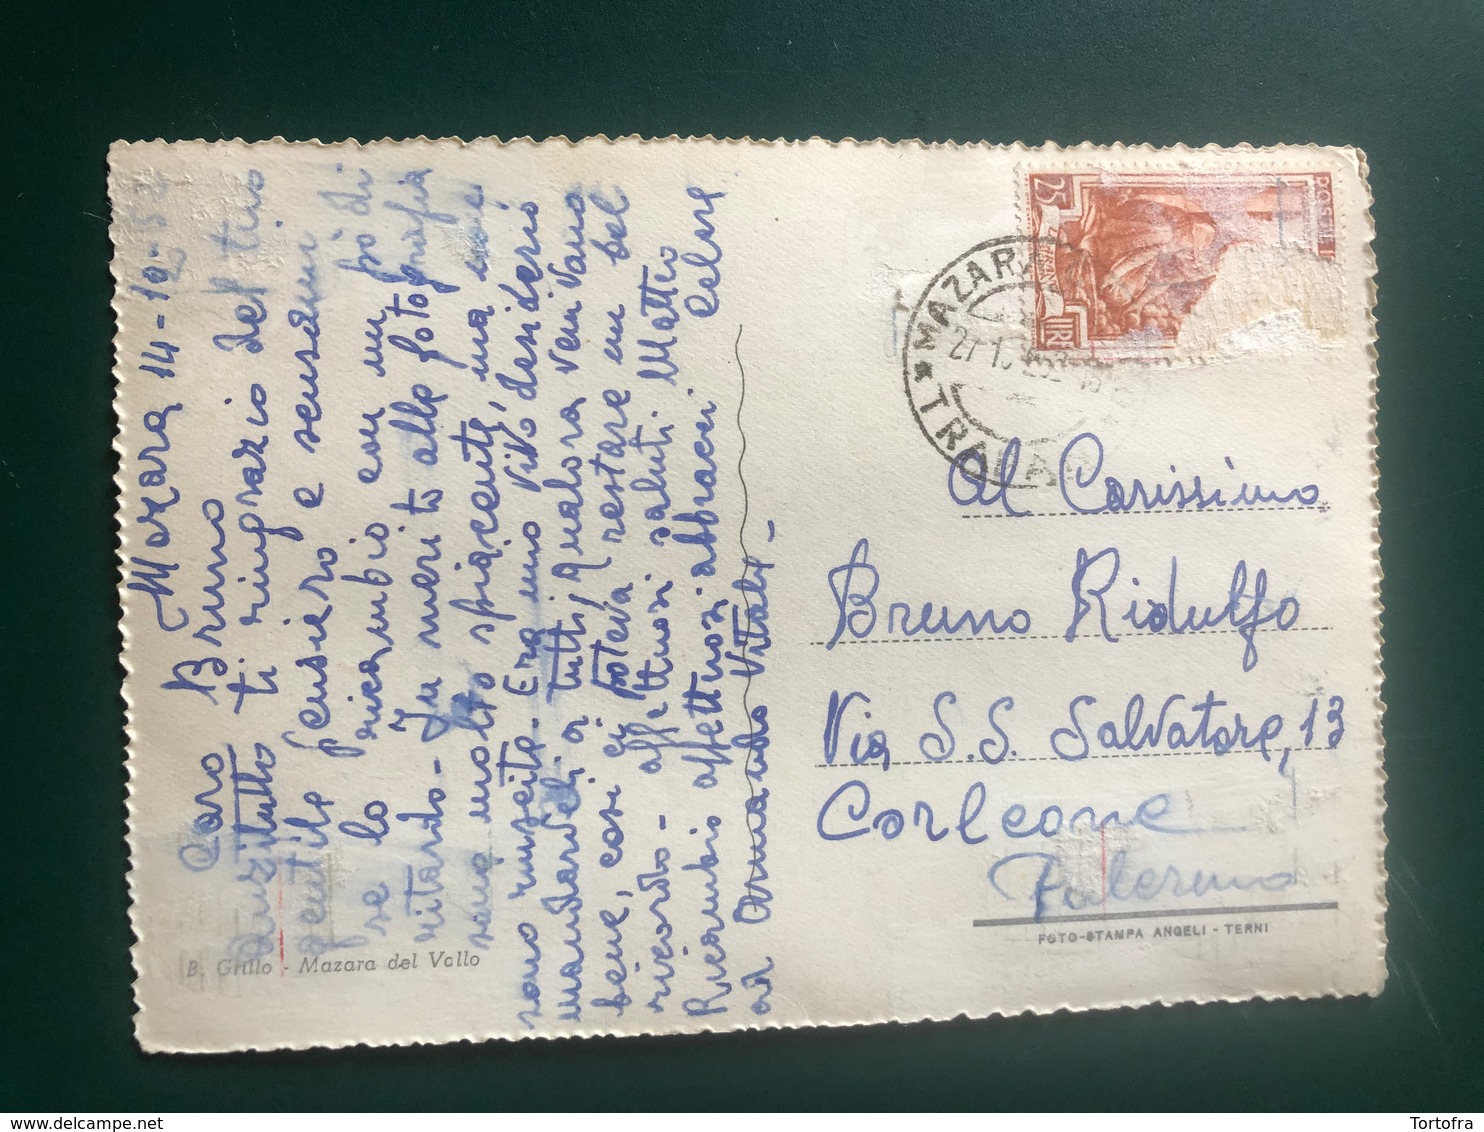 Mazara 14-10-53
Caro Bruno
anzitutto ti ringrazio del tuo
gentile pensiero e scusami
se lo ricambio con un pò di
ritardo - In merito alle fotografia
sono molto spiacente, ma non
sono riuscite - Era mio vivo desiderio
mandarle a tutti, qualora venivano
bene, così ci poteva restare un bel
ricordo - affettuosi saluti Matteo
Ricambio affettuosi abbracci
ed Armando Vitale -
B. Grillo - Mazara del Vallo
POSTE
25 LIRE
MAZARA
TRAPANI
Al Carissimo
Bruno Ridulfo
Via S.S. Salvatore, 13
Corleone
Palermo
FOTO-STAMPA ANGELI - TERNI
Tortofra